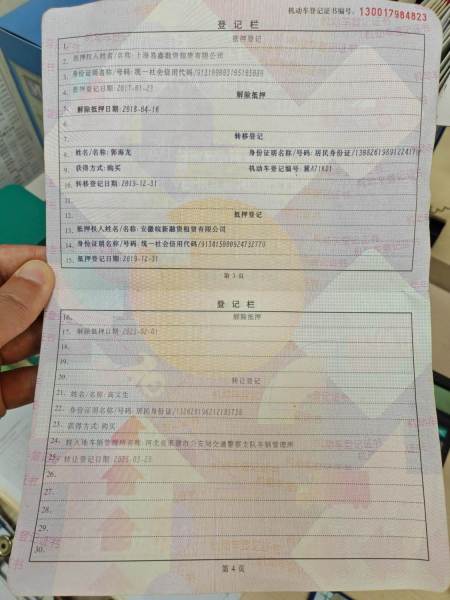 机动车登记证书编号：130017984823
登记栏
1. 抵押登记
2. 抵押权人姓名/名称：上海易鑫融资租赁有限公司
3. 身份证明名称/号码：统一社会信用代码/
4. 抵押登记日期：2017-01-23
解除抵押
5. 解除抵押日期：2018-04-16
6.
7. 转移登记
8. 姓名/名称：郭海龙 身份证明名称/号码：居民身份证/
9. 获得方式：购买 机动车登记编号：冀A71K21
10. 转移登记日期：2019-12-31
11.
12. 抵押登记
13. 抵押权人姓名/名称：安徽皖新融资租赁有限公司
14. 身份证明名称/号码：统一社会信用代码/
15. 抵押登记日期：2019-12-31
第 3 页
登记栏
16. 解除抵押
17. 解除抵押日期：
18.
19.
20. 转让登记
21. 姓名/名称：高文生
22. 身份证明名称/号码：居民身份证/
23. 获得方式：购买
24. 转入地车辆管理所名称：河北省承德市公安局交通警察支队车辆管理所
25. 转让登记日期：
26.
27.
28.
29.
30.
第 4 页